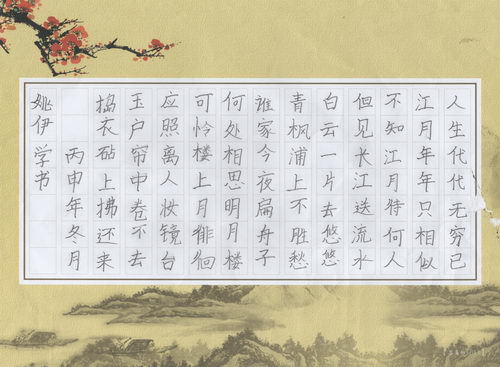 人生代代无穷已
江月年年只相似
不知江月待何人
但见长江送流水
白云一片去悠悠
青枫浦上不胜愁
谁家今夜扁舟子
何处相思明月楼
可怜楼上月徘徊
应照离人妆镜台
玉户帘中卷不去
捣衣砧上拂还来
丙申年冬月
姚伊学书